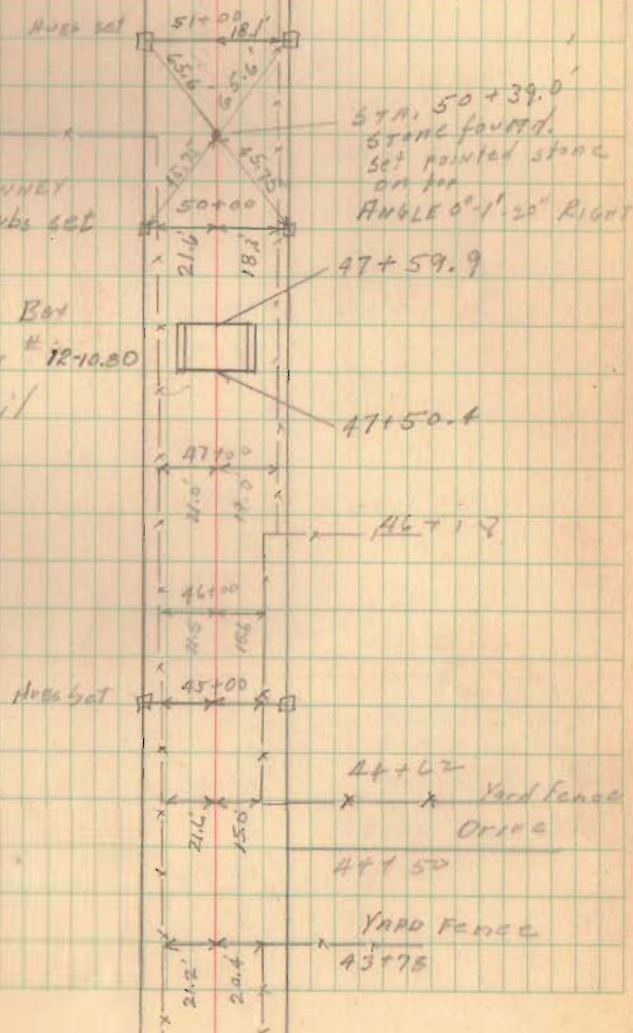 Hubs set
51+00
18.1'
65.6'
65.6'
STA. 50+39.0'
Stone found.
Set pointed stone
on top
ANGLE 0°-1'-20" RIGHT
45.75'
50+00
NNEY
ubs set
21.6'
18.2'
47+59.9
Box
# 12-10.80
47+50.4
47+00
21.0'
19.0'
46+
46+00
21.5
Hubs Set
45+00
44+62
Yard Fence
21.6'
15.0'
Drive
44+50
YARD Fence
43+78
21.2'
20.4'